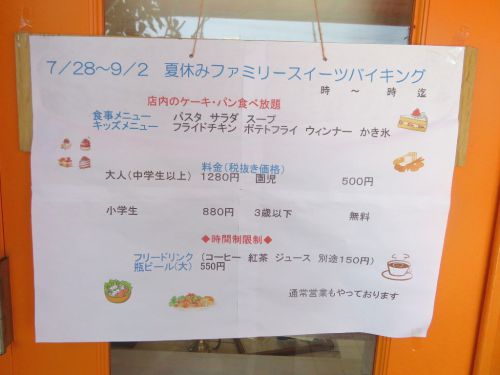 7/28～9/2 夏休みファミリースイーツバイキング
時 ～ 時 迄
店内のケーキ・パン食べ放題
食事メニュー パスタ サラダ スープ
キッズメニュー フライドチキン ポテトフライ ウィンナー かき氷
料金(税抜き価格)
大人(中学生以上) 1280円 園児 500円
小学生 880円 3歳以下 無料
◆時間制限制◆
フリードリンク (コーヒー 紅茶 ジュース 別途150円)
瓶ビール(大) 550円
通常営業もやっております